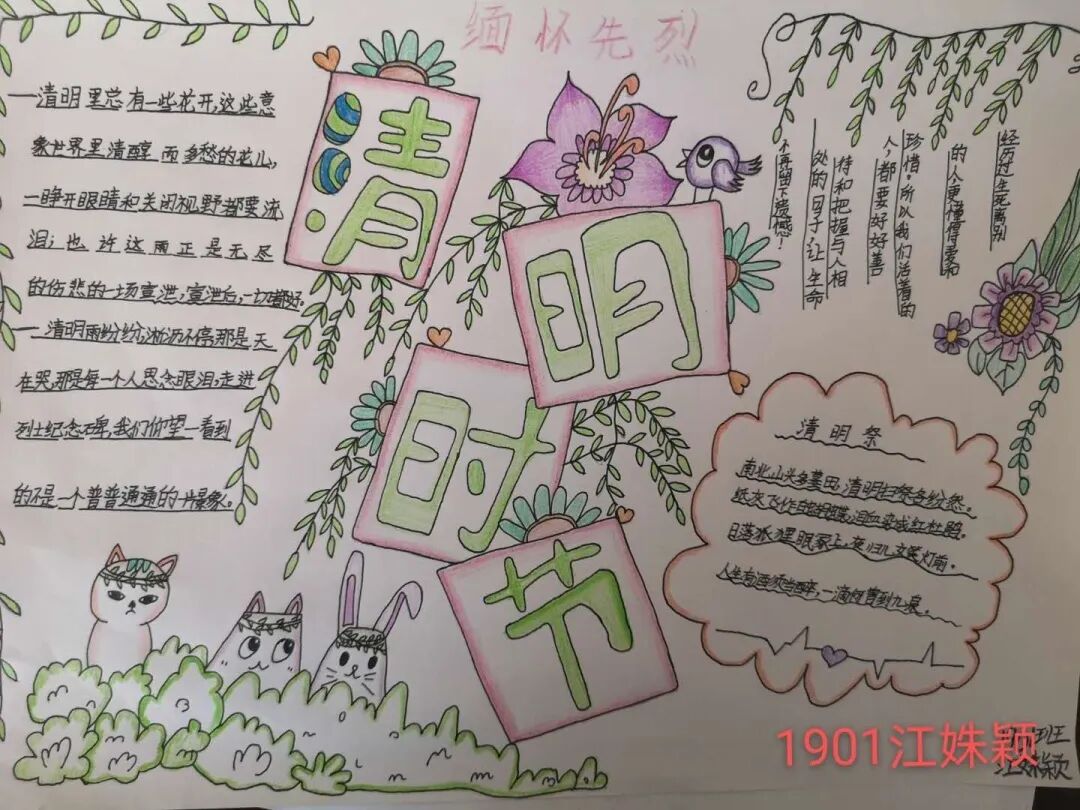 缅怀先烈
清明时节
一清明里总有一些花开,这些意
象世界里清醇而多愁的花儿,
一睁开眼睛和关闭视野都要流
泪;也许这雨正是无尽
的伤悲的一场宣泄,宣泄后,一切都好.
一清明雨纷纷,淅沥不停那是天
在哭,那是每一个人思念眼泪,走进
烈士纪念碑,我们仰望一看到
的不是一个普普通通的片景象。
经历过生死离别
的人更懂得爱和
珍惜。所以我们活着的
人,都要好好善
待和把握与人相
处的日子让生命
不再留下遗憾!
清明祭
南北山头多墓田,清明扫祭各纷然。
纸灰飞作白蝴蝶,泪血染成红杜鹃。
日落狐狸眠冢上,夜归儿女笑灯前。
人生有酒须当醉,一滴何曾到九泉。
班
江姝颖
1901江姝颖